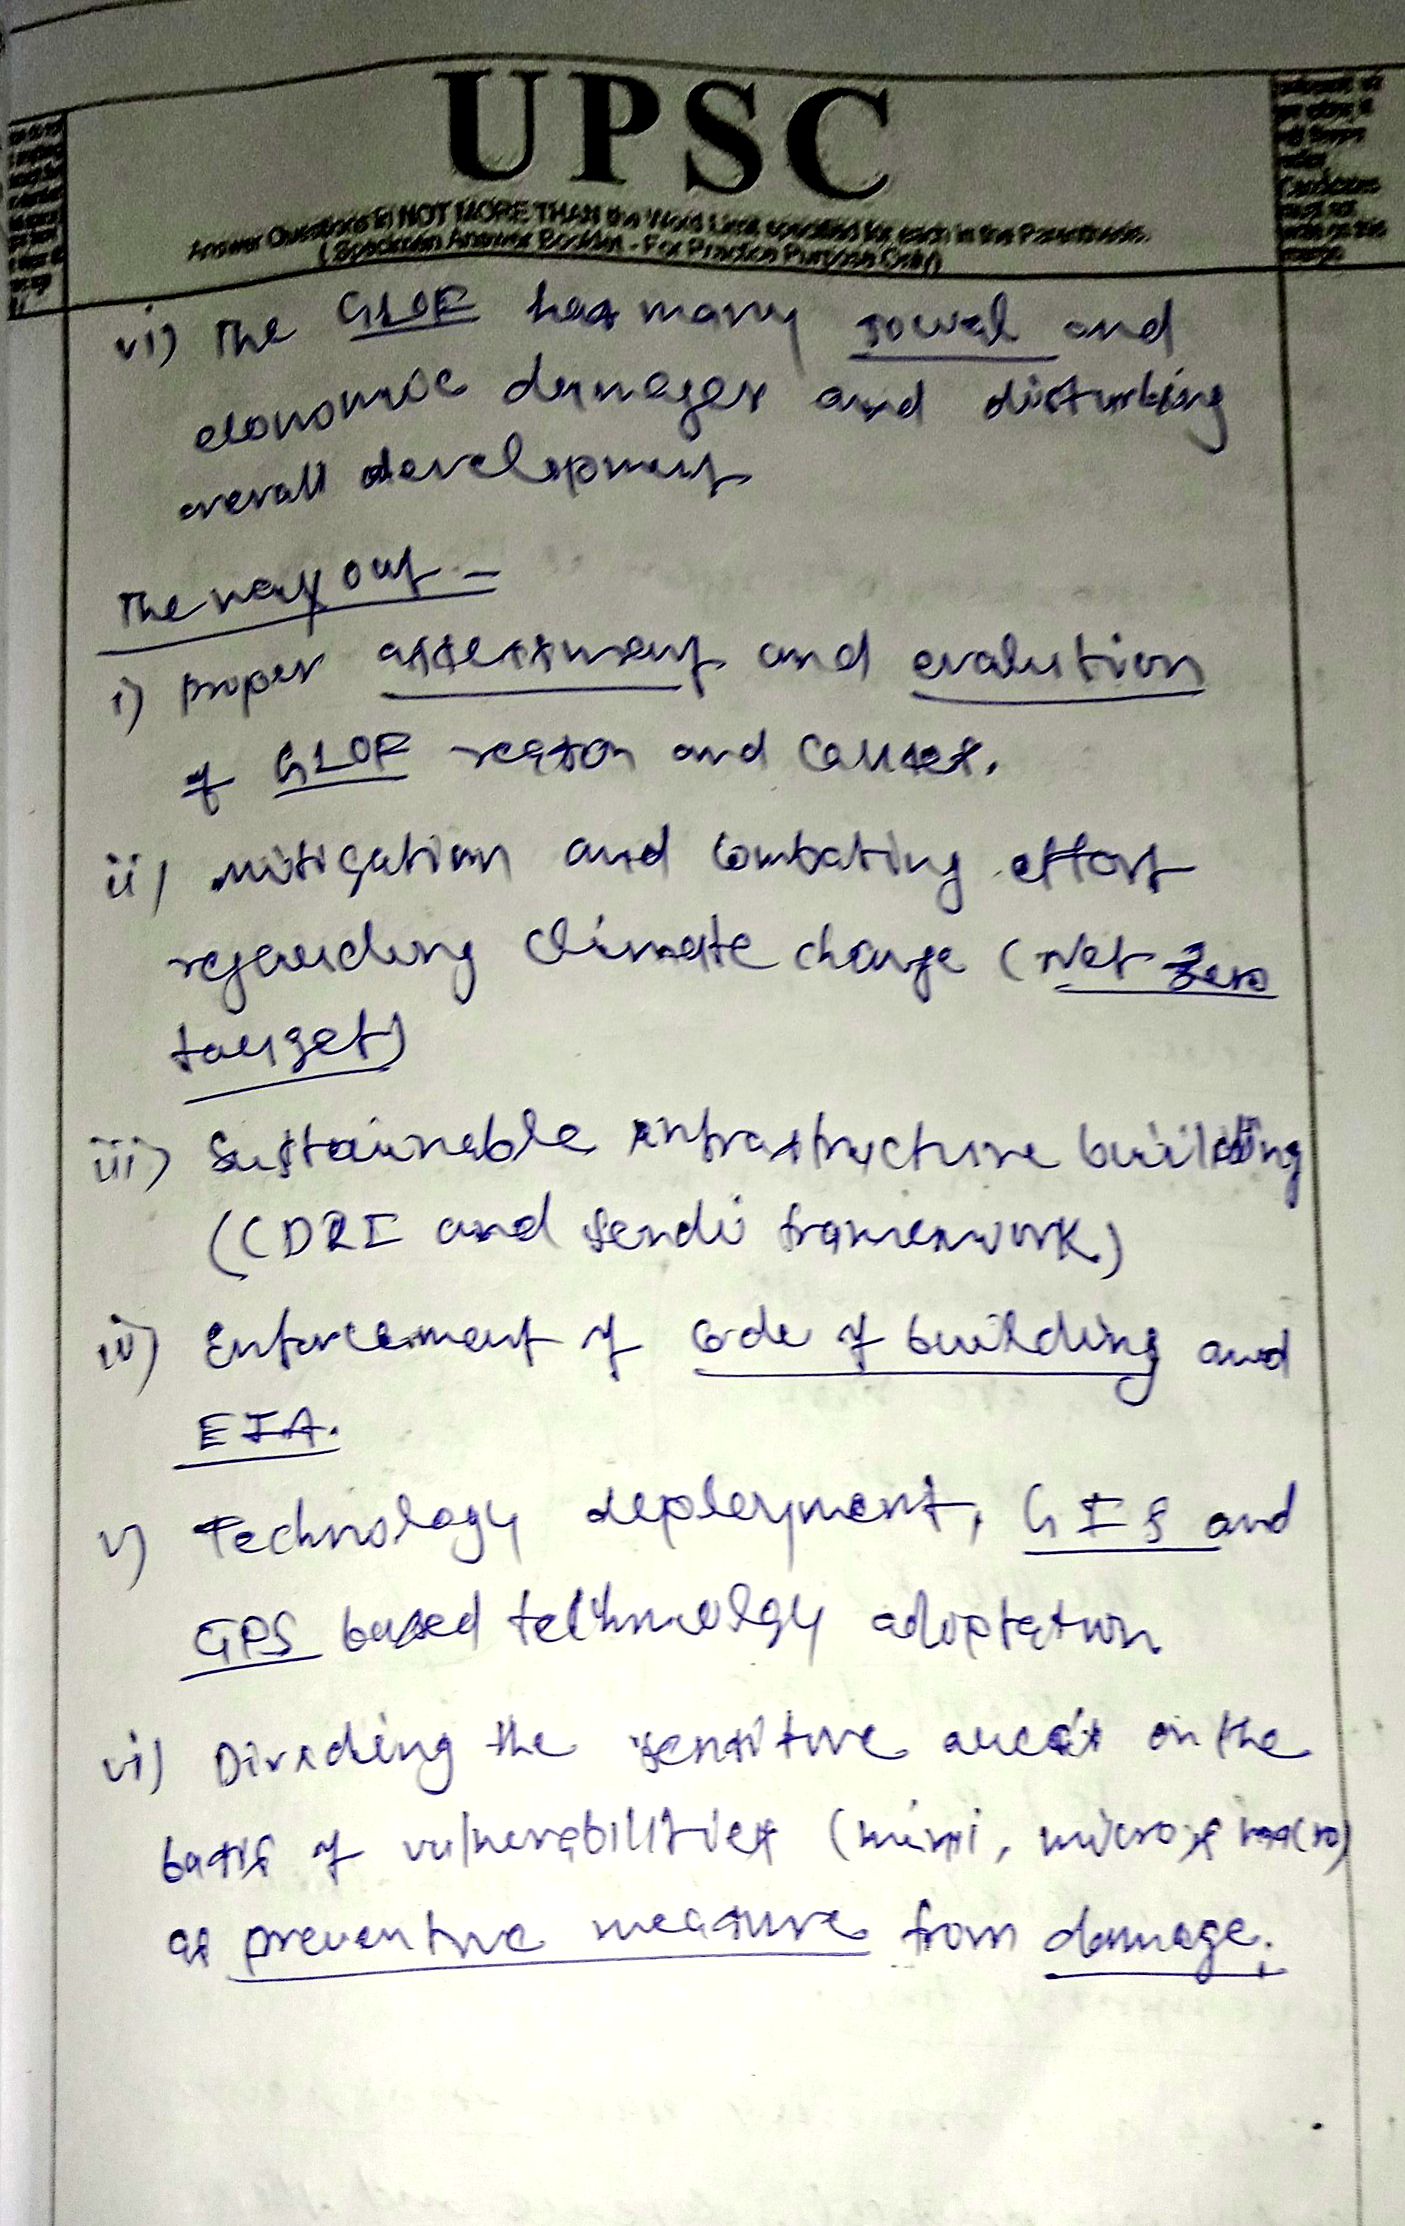 UPSC
Answer Questions in NOT MORE THAN the Word Limit specified for each in the Parenthesis.
(Specimen Answer Booklet - For Practice Purpose Only)
Candidates
must not
write on this
margin
vi) The GLOF has many social and
economic damages and disturbing
overall development
The way out -
i) Proper assessment and evalution
of GLOF reason and causes.
ii) Mitigation and combating effort
regarding climate change (Net Zero
target)
iii) Sustainable infrastructure building
(CDRI and Sendi framework)
iv) Enforcement of code of building and
EIA.
v) Technology deployment, GIS and
GPS based technology adoptation
vi) Dividing the sensitive areas on the
basis of vulnerabilities (mini, micro, macro)
as preventive measure from damage.